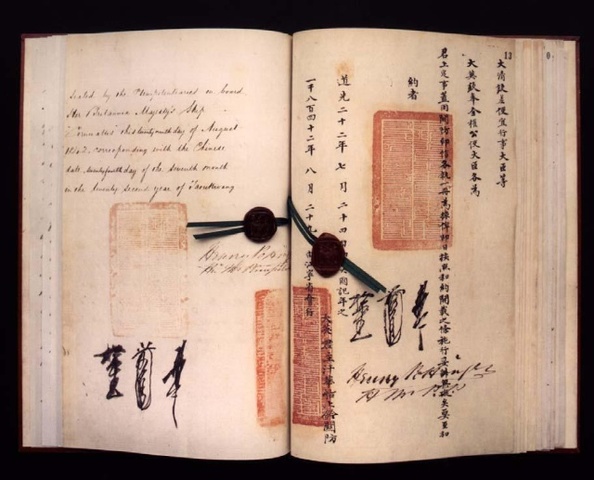 Sealed by the Plenipotentiaries on board
Her Britannic Majesty's Ship
"Cornwallis" this twenty ninth day of August
1842. corresponding with the Chinese
date, twenty fourth day of the seventh month
in the twenty second year of Taoukwang
Henry Pottinger
12
大清欽差便宜行事大臣等
大英欽奉全權公使大臣各為
君上定事蓋用關防印信各執一冊為據俾即日按照和約開載之條施行妥辦無礙矣要至和
約者
道光二十二年七月二十四日國記年之
一千八百四十二年八月二十九寧省會行
大英君主汗華船上關防
Henry Pottinger